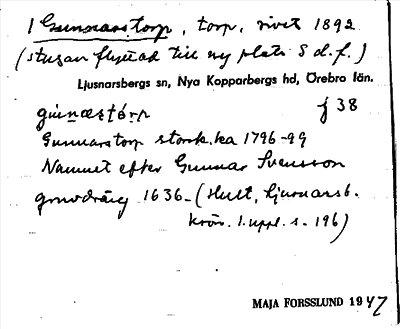 1 Gunnarstorp, torp, rivet 1892
(stugan flyttad till ny plats S d.f.)
Ljusnarsbergs sn, Nya Kopparbergs hd, Örebro län.
gunastórp f 38
Gunnarstorp stork.ka 1796-99
Namnet efter Gunnar Svensson
gruvdräng 1636 - (Hult, Ljusnarsb.
krön. 1. uppl. s. 196)
MAJA FORSSLUND 1947